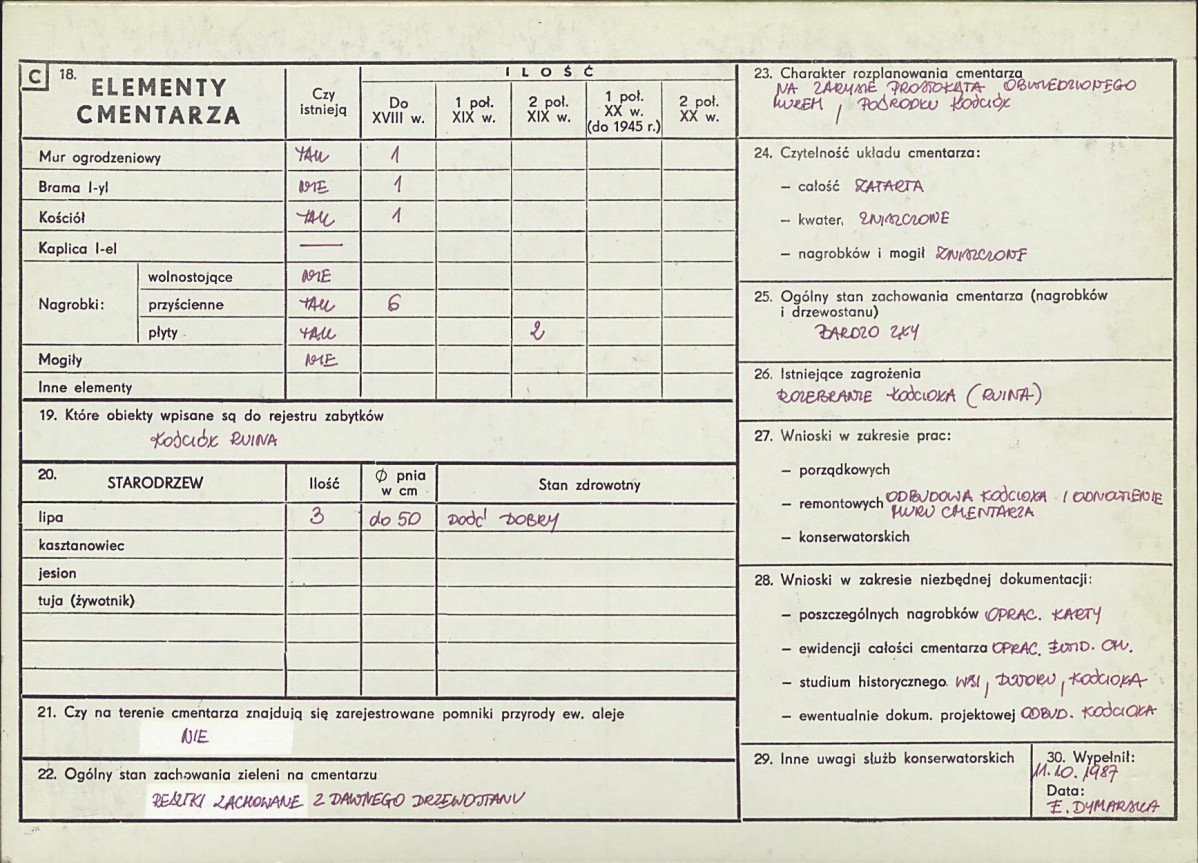 C 18. ELEMENTY CMENTARZA
Czy istnieją
ILOŚĆ
Do XVIII w.
1 poł. XIX w.
2 poł. XIX w.
1 poł. XX w. (do 1945 r.)
2 poł. XX w.
Mur ogrodzeniowy TAK 1
Brama I-yl NIE 1
Kościół TAK 1
Kaplica I-el —
Nagrobki:
wolnostojące NIE
przyścienne TAK 6
płyty TAK 2
Mogiły NIE
Inne elementy
19. Które obiekty wpisane są do rejestru zabytków
KOŚCIÓŁ RUINA
20. STARODRZEW Ilość Ø pnia w cm Stan zdrowotny
lipa 3 do 50 DOŚĆ DOBRY
kasztanowiec
jesion
tuja (żywotnik)
21. Czy na terenie cmentarza znajdują się zarejestrowane pomniki przyrody ew. aleje
NIE
22. Ogólny stan zachowania zieleni na cmentarzu
RESZTKI ZACHOWANE Z DAWNEGO DRZEWOSTANU
23. Charakter rozplanowania cmentarza
NA ZARYSIE PROSTOKĄTA OBWIEDZIONEGO
MUREM, POŚRODKU KOŚCIÓŁ
24. Czytelność układu cmentarza:
– całość ZATARTA
– kwater, ZNISZCZONE
– nagrobków i mogił ZNISZCZONE
25. Ogólny stan zachowania cmentarza (nagrobków
i drzewostanu)
BARDZO ZŁY
26. Istniejące zagrożenia
ROZEBRANIE KOŚCIOŁA (RUINA)
27. Wnioski w zakresie prac:
– porządkowych
– remontowych ODBUDOWA KOŚCIOŁA I ODNOWIENIE
MURU CMENTARZA
– konserwatorskich
28. Wnioski w zakresie niezbędnej dokumentacji:
– poszczególnych nagrobków OPRAC. KARTY
– ewidencji całości cmentarza OPRAC. EWID. CM.
– studium historycznego WSI, DWORU, KOŚCIOŁA
– ewentualnie dokum. projektowej ODBUD. KOŚCIOŁA
29. Inne uwagi służb konserwatorskich
30. Wypełnił:
11.10.1987
Data:
E. DYMARSKA